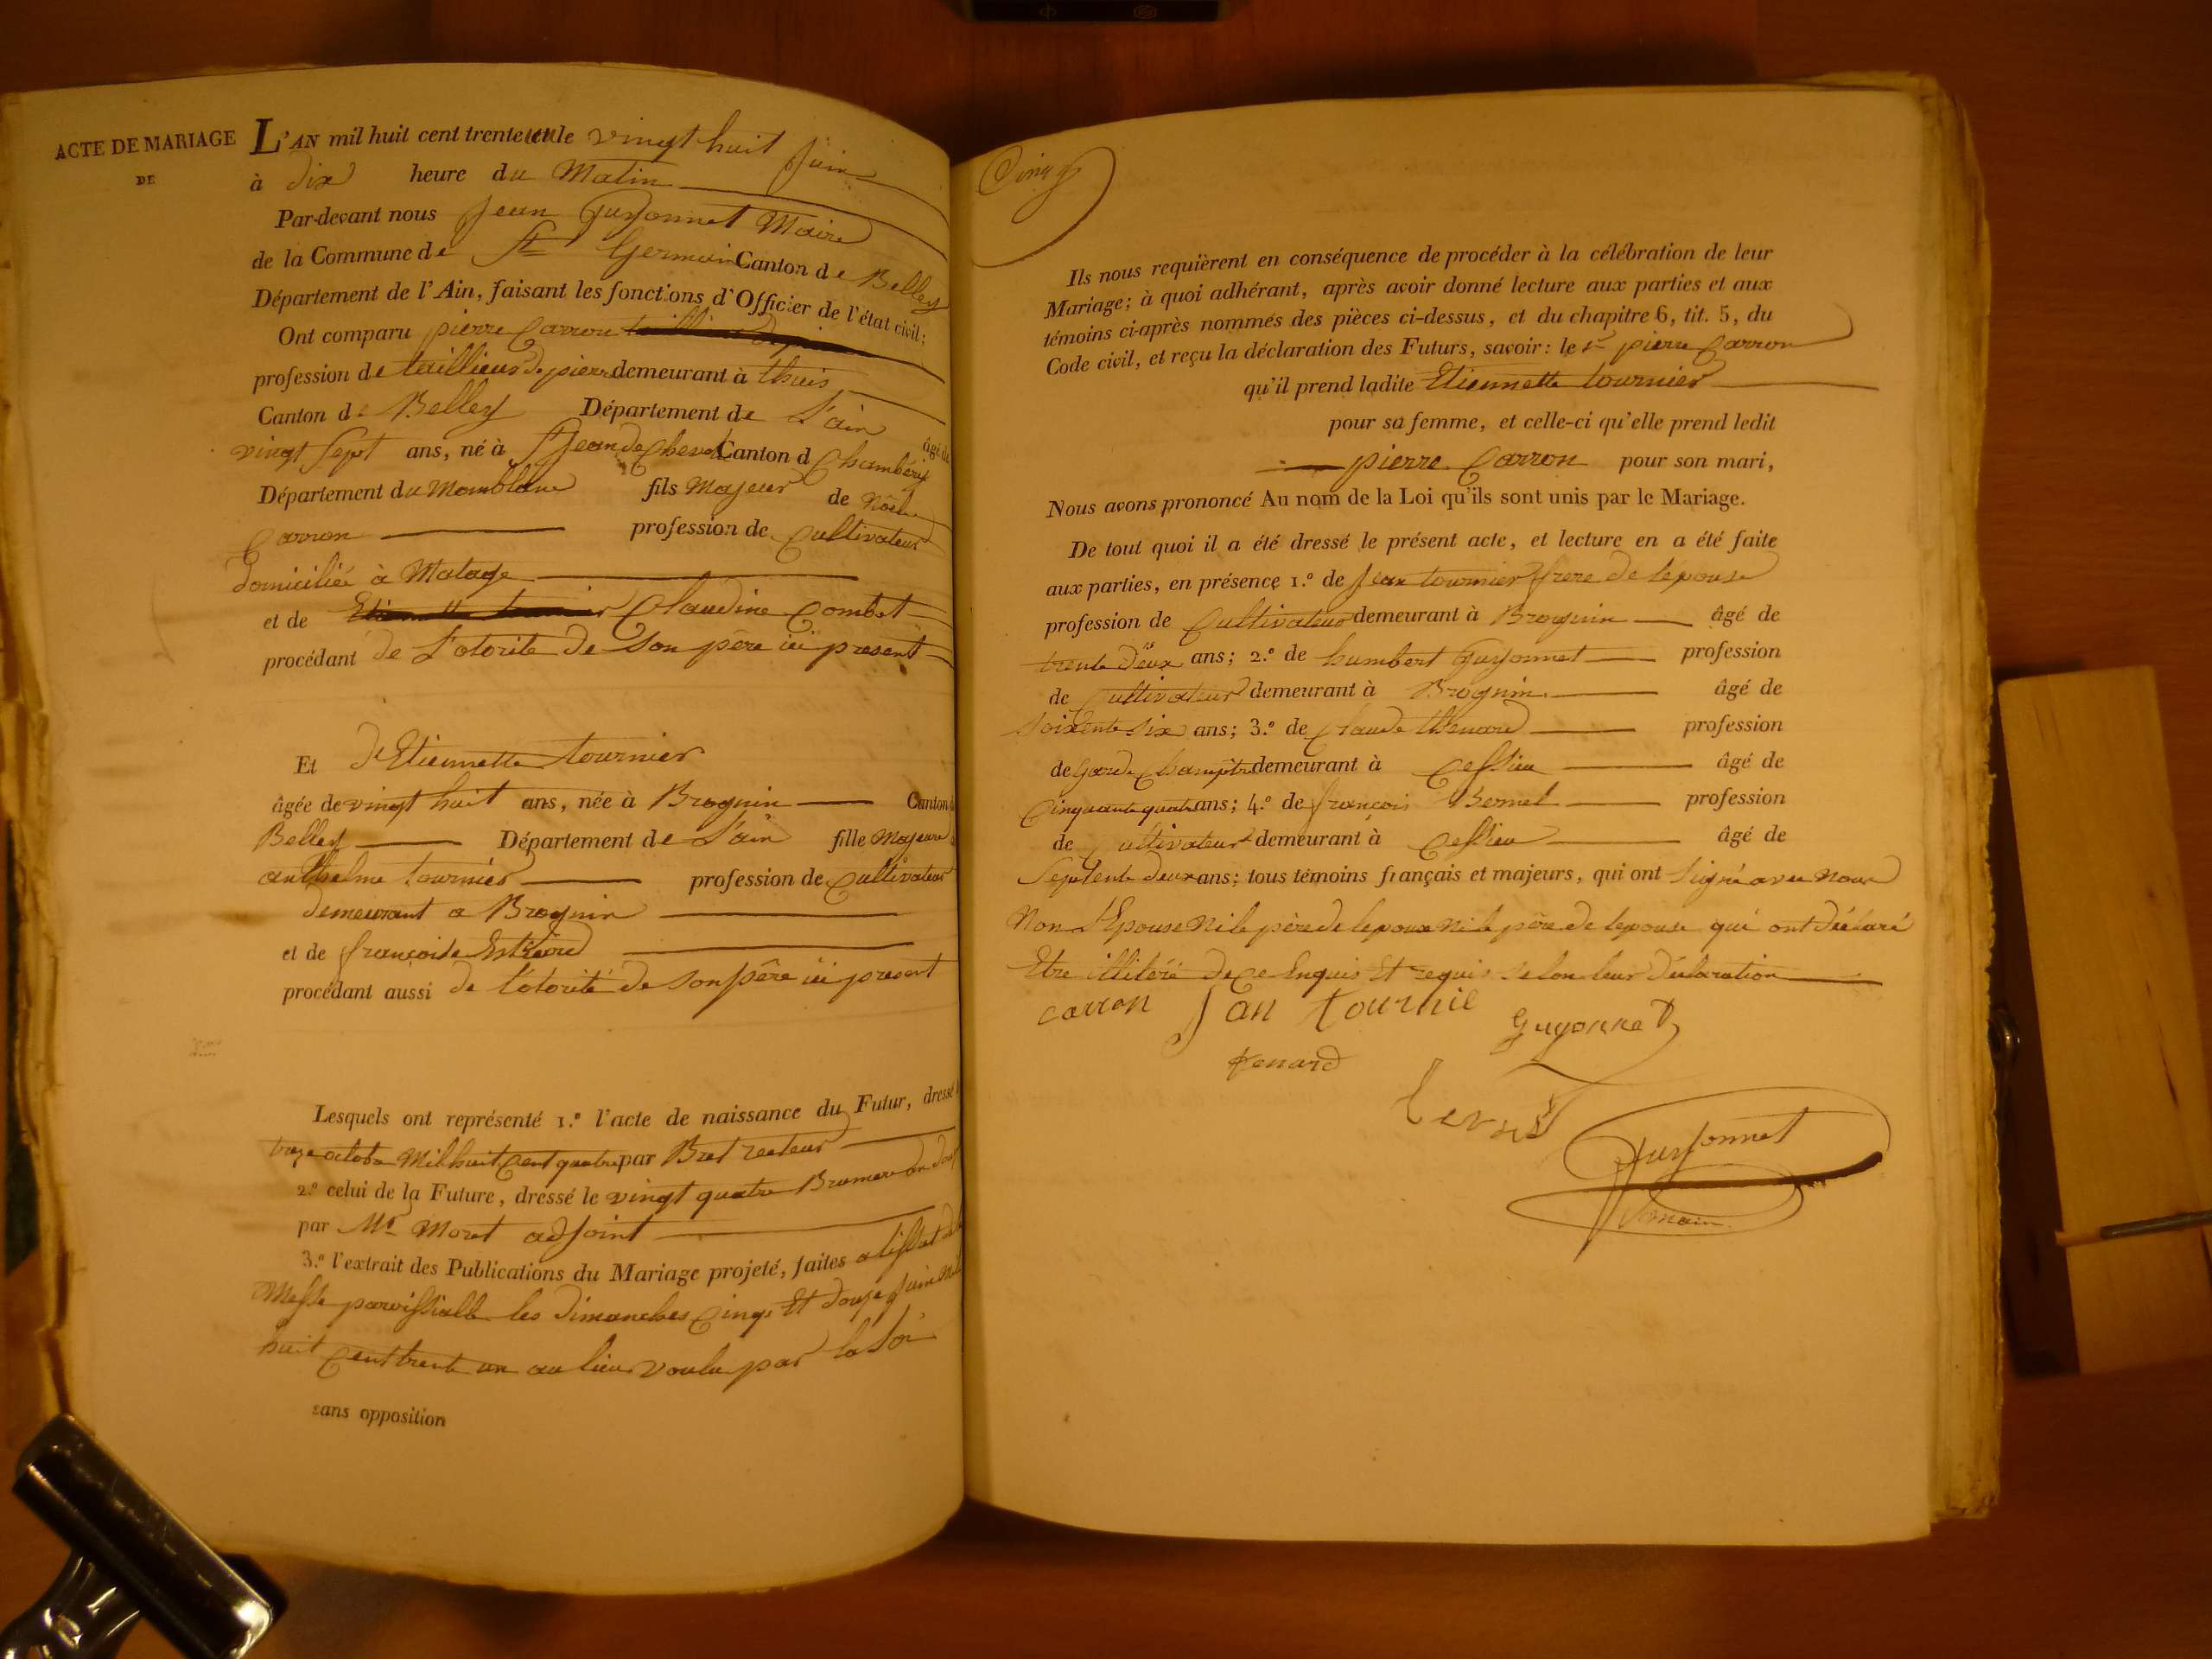 ACTE DE MARIAGE
DE
L'AN mil huit cent trente un le vingt huit Juin
à dix heure du Matin
Par-devant nous Jean Guyonnet Maire
de la Commune de St Germain Canton de Belley
Département de l'Ain, faisant les fonctions d'Officier de l'état civil;
Ont comparu pierre Carron
profession de tailleur de pierre demeurant à thuis
Canton de Belley Département de L'ain âgé de
vingt Sept ans, né à St Jean de Canton d Chambery
Département du Momblanc fils Majeur de Nôel
Carron profession de Cultivateur
domiciliée à Matage
et de Claudine Combet
procédant de L'otorité de Son père ici present
Et d'Etiennette tournier
âgée de vingt huit ans, née à Brognin Canton d
Belley Département de L'ain fille Majeure
anthelme tournier profession de Cultivateur
demeurant a Brognin
et de françoise
procédant aussi de l'otorité de son père ici present
Lesquels ont représenté 1.º l'acte de naissance du Futur, dressé
treze octobre Mil huit Cent quatre par Bret recteur
2.º celui de la Future, dressé le vingt quatre Brumere an
par Mr Moret adjoint
3.º l'extrait des Publications du Mariage projeté, faites
Messe paroissialle les dimanches Cinq Et douze Juin Mil
huit Cent trente un au lieu voulu par la Loi
sans opposition
Cinq
Ils nous requièrent en conséquence de procéder à la célébration de leur
Mariage; à quoi adhérant, après avoir donné lecture aux parties et aux
témoins ci-après nommés des pièces ci-dessus, et du chapitre 6, tit. 5, du
Code civil, et reçu la déclaration des Futurs, savoir: le Sr pierre Carron
qu'il prend ladite Etiennette tournier
pour sa femme, et celle-ci qu'elle prend ledit
pierre Carron pour son mari,
Nous avons prononcé Au nom de la Loi qu'ils sont unis par le Mariage.
De tout quoi il a été dressé le présent acte, et lecture en a été faite
aux parties, en présence 1.º de Jean tournier frere de lépouse
profession de Cultivateur demeurant à Brognin âgé de
trente deux ans; 2.º de humbert Guyonnet profession
de Cultivateur demeurant à Brognin âgé de
Soixente Six ans; 3.º de Claude thenard profession
de Garde Champêtre demeurant à Cessieu âgé de
Cinquante quatre ans; 4.º de françois Bernel profession
de Cultivateur demeurant à Cessieu âgé de
Septente deux ans; tous témoins français et majeurs, qui ont Signé avec Nous
Non L'Epouse Ni le père de lepoux Ni le père de lepouse qui ont déclaré
Etre illiteré de Ce Enquis Et requis Selon leur déclaration
carron Jan tournié Guyonnet
tenard
Guyonnet